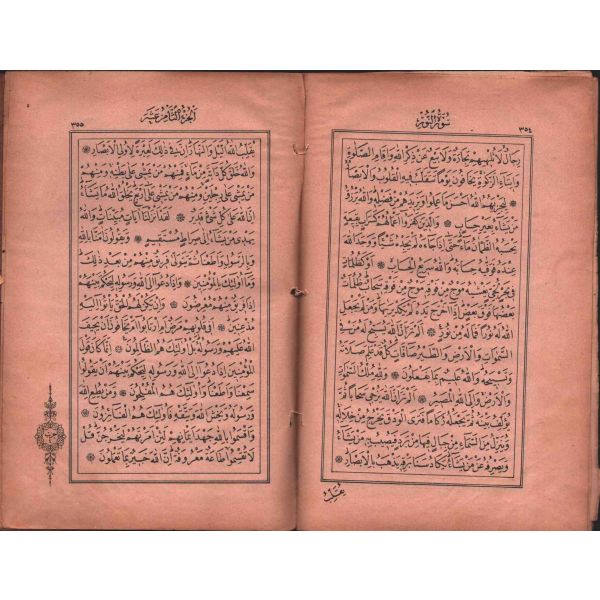 سورة النور
٣٥٤
رجال لا تلهيهم تجارة ولا بيع عن ذكر الله واقام الصلوة
وايتاء الزكوة يخافون يوما تتقلب فيه القلوب والابصار
ليجزيهم الله احسن ما عملوا ويزيدهم من فضله والله يرزق
من يشاء بغير حساب والذين كفروا اعمالهم كسراب بقيعة
يحسبه الظمان ماء حتى اذا جاءه لم يجده شيئا ووجد الله
عنده فوفيه حسابه والله سريع الحساب او كظلمات
في بحر لجي يغشيه موج من فوقه موج من فوقه سحاب ظلمات
بعضها فوق بعض اذا اخرج يده لم يكد يريها ومن لم يجعل
الله له نورا فما له من نور الم تر ان الله يسبح له من في
السموات والارض والطير صافات كل قد علم صلاته
وتسبيحه والله عليم بما يفعلون ولله ملك السموات
والارض والى الله المصير الم تر ان الله يزجي سحابا ثم
يؤلف بينه ثم يجعله ركاما فترى الودق يخرج من خلاله
وينزل من السماء من جبال فيها من برد فيصيب به من يشاء
ويصرفه عن من يشاء يكاد سنا برقه يذهب بالابصار
يقلب
الجزء الثامن عشر
٣٥٥
يقلب الله الليل والنهار ان في ذلك لعبرة لاولى الابصار
والله خلق كل دابة من ماء فمنهم من يمشي على بطنه ومنهم
من يمشي على رجلين ومنهم من يمشي على اربع يخلق الله ما يشاء
ان الله على كل شيء قدير لقد انزلنا ايات مبينات والله
يهدي من يشاء الى صراط مستقيم ويقولون امنا بالله
وبالرسول واطعنا ثم يتولى فريق منهم من بعد ذلك
وما اولئك بالمؤمنين واذا دعوا الى الله ورسوله ليحكم بينهم
اذا فريق منهم معرضون وان يكن لهم الحق ياتوا اليه
مذعنين افي قلوبهم مرض ام ارتابوا ام يخافون ان يحيف
الله عليهم ورسوله بل اولئك هم الظالمون انما كان قول
المؤمنين اذا دعوا الى الله ورسوله ليحكم بينهم ان يقولوا
سمعنا واطعنا واولئك هم المفلحون ومن يطع الله
ورسوله ويخش الله ويتقه فاولئك هم الفائزون
واقسموا بالله جهد ايمانهم لئن امرتهم ليخرجن قل
لا تقسموا طاعة معروفة ان الله خبير بما تعملون